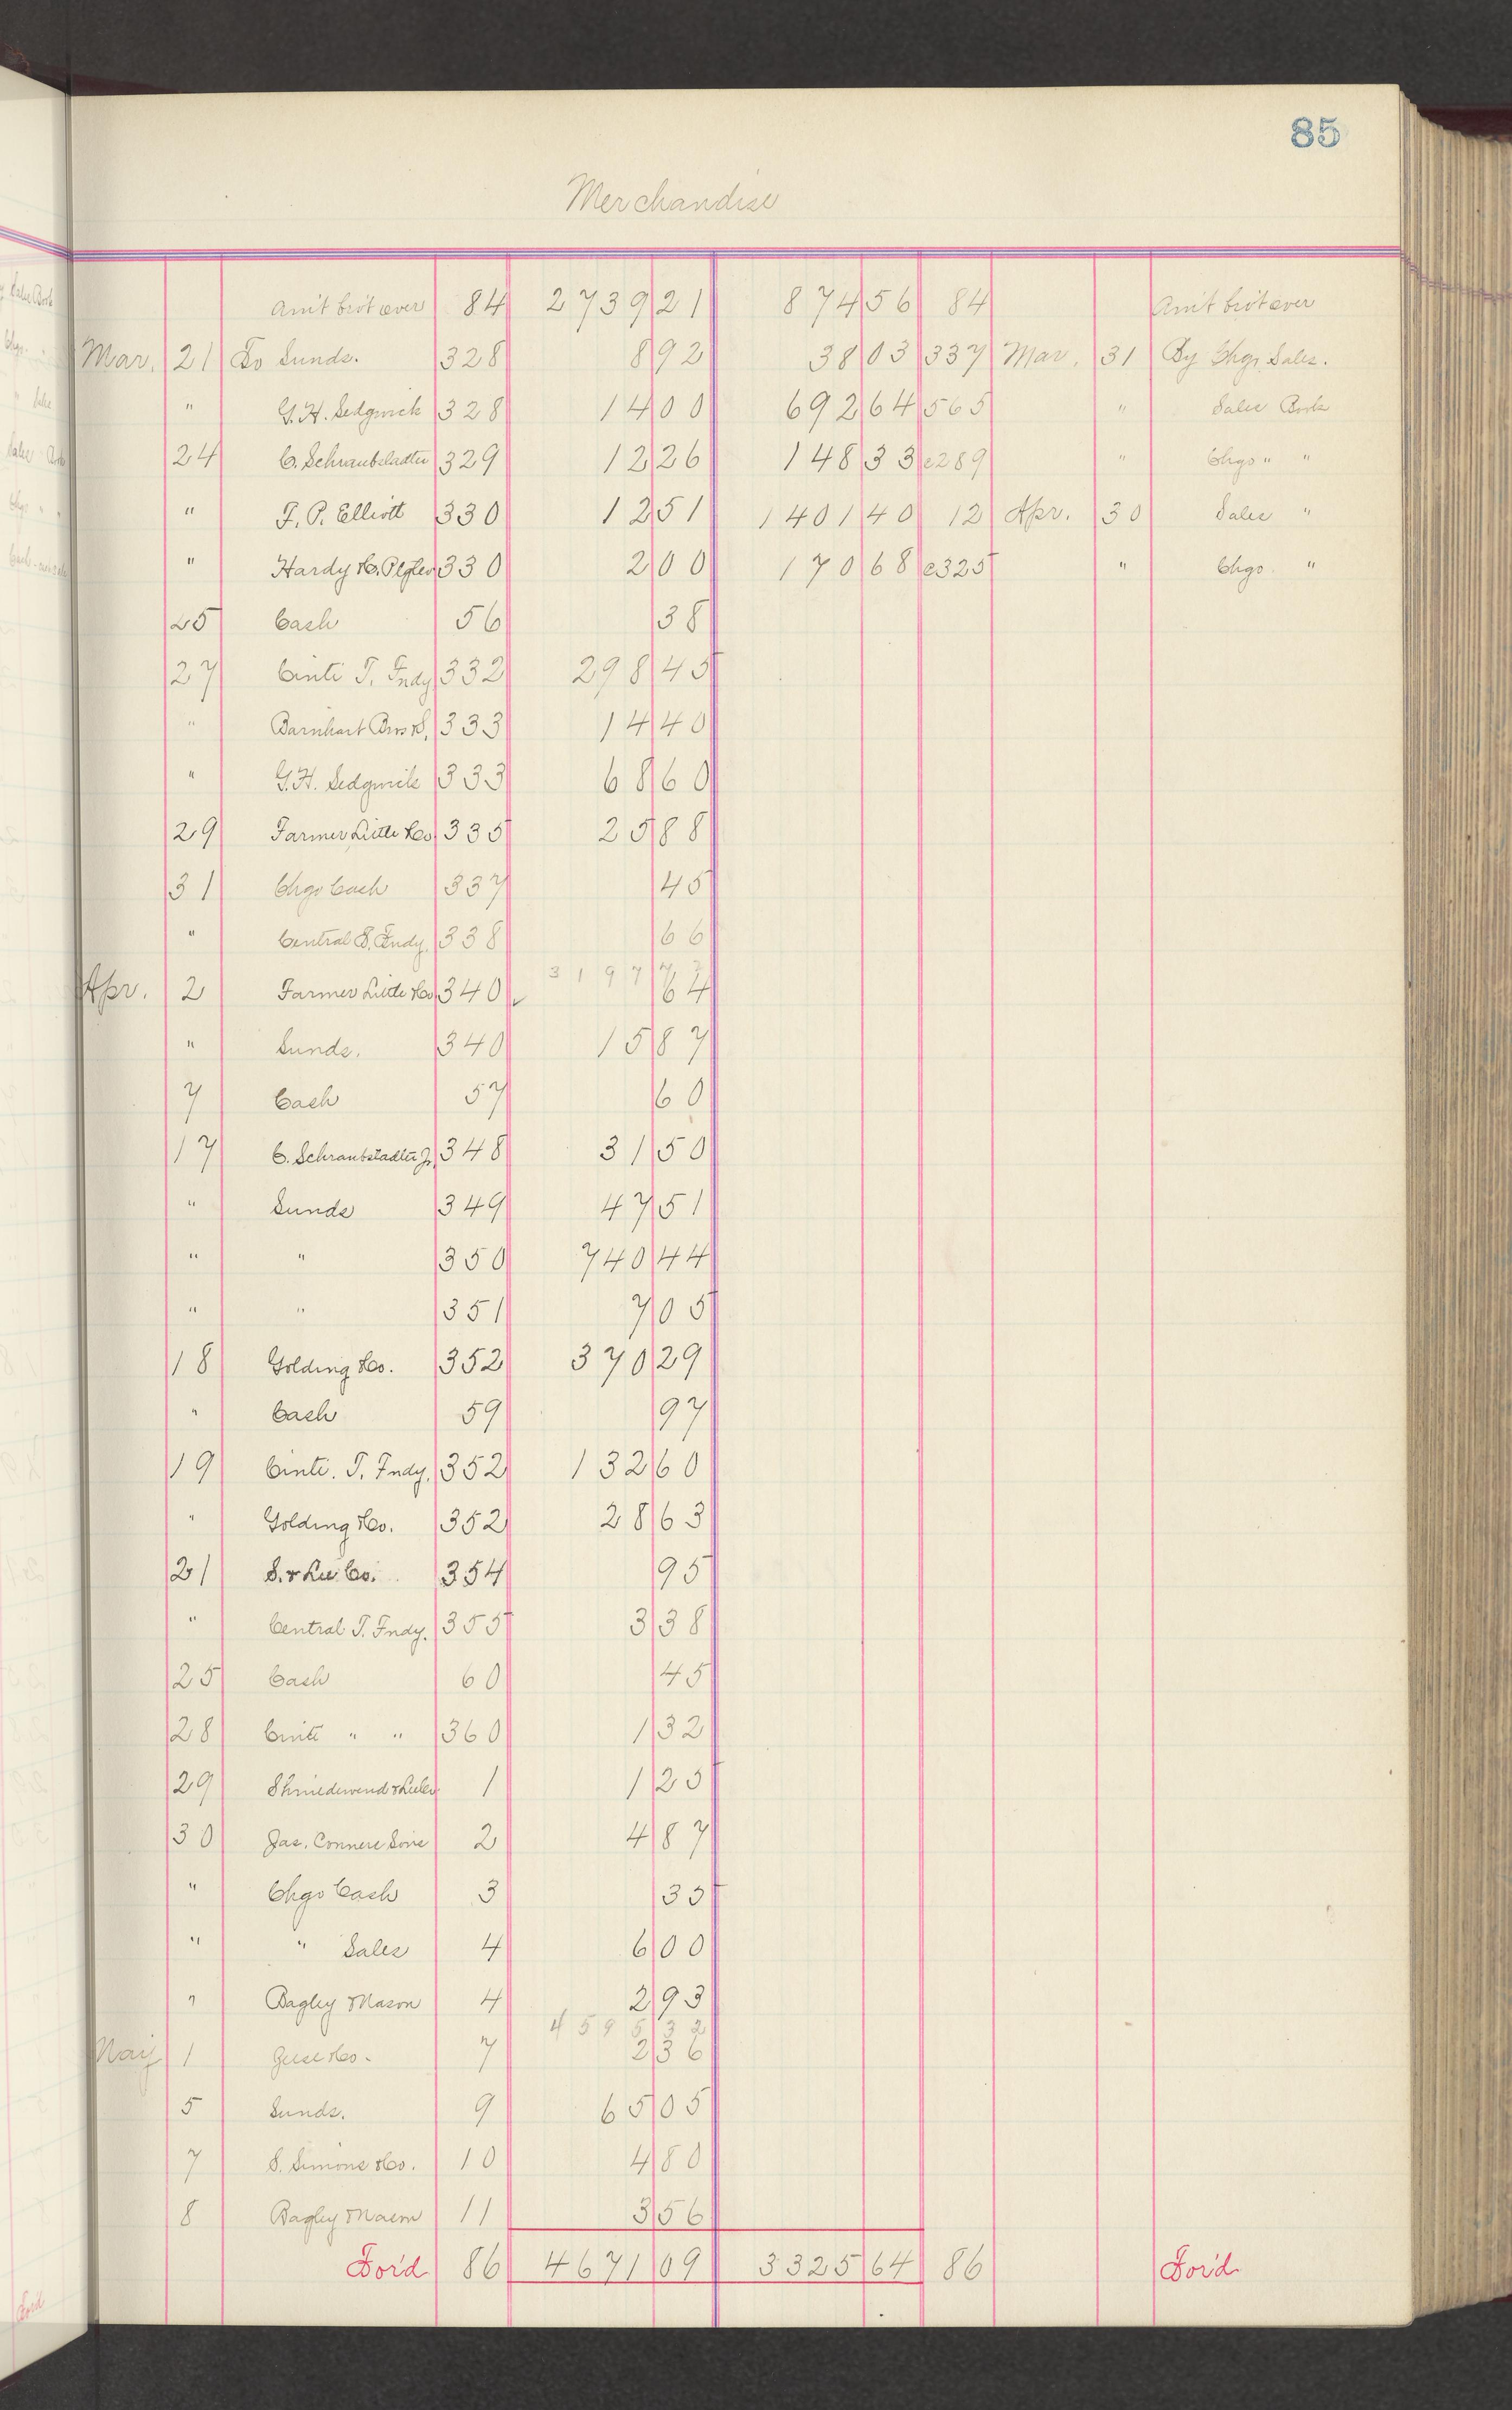 85
Merchandise
Am't bro't over 84 2739 21 874 56 84 Am't bro't over
Mar. 21 To Sunds. 328 8 92 38 03 337 Mar. 31 By Chgo Sales.
" G.H. Sedgwick 328 14 00 692 64 565 " Sales Book
24 C. Schraubstadter 329 12 26 148 33 c289 " Chgo " "
" F. P. Elliott 330 12 51 1401 40 12 Apr. 30 Sales "
" Hardy 330 2 00 170 68 c325 " Chgo "
25 Cash 56 38
27 Cinti T. Fndy 332 298 45
" Barnhart Bros & S. 333 14 40
" G.H. Sedgwick 333 68 60
29 Farmer Little & Co 335 25 88
31 Chgo Cash 337 45
" Central T. Fndy. 338 66
3197 77
Apr. 2 Farmer Little & Co 340 64
" Sunds. 340 15 87
7 Cash 57 60
17 C. Schraubstadter Jr. 348 31 50
" Sunds 349 47 51
" " 350 740 44
" " 351 7 05
18 Golding & Co. 352 370 29
" Cash 59 97
19 Cinti. T. Fndy. 352 132 60
" Golding & Co. 352 28 63
21 S. & Lee Co. 354 95
" Central T. Fndy. 355 3 38
25 Cash 60 45
28 Cinti " " 360 1 32
29 Shniedewend & Lee Co 1 1 25
30 Jas. Conners Sons 2 4 87
" Chgo Cash 3 35
" " Sales 4 6 00
" Bagley Mason 4 2 93
4595 32
May 1 7 2 36
5 Sunds. 9 65 05
7 S. Simons & Co. 10 4 80
8 Bagley Mason 11 3 56
For'd 86 4671 09 3325 64 86 For'd